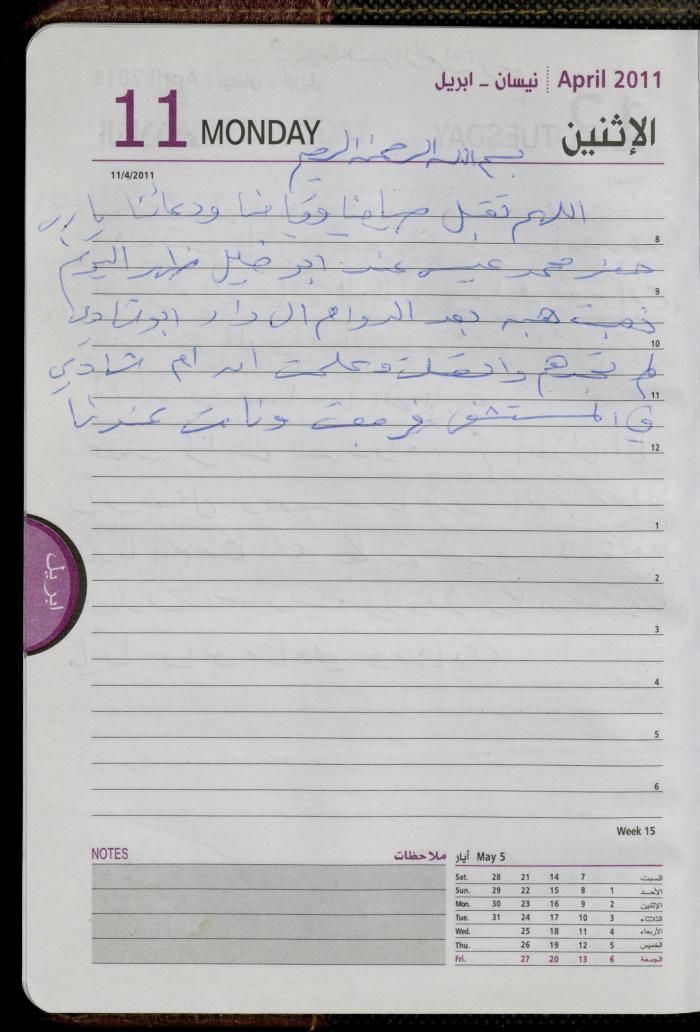 April 2011 نيسان ـ ابريل
11 MONDAY الإثنين
بسم الله الرحمن الرحيم
11/4/2011
اللهم تقبل صيامنا وقيامنا ودعائنا يا رب
8
محمد عيسى عند ابو خليل ظهر اليوم
9
ذهبت هبه بعد الدوام الى دار ابو شادي
10
لم تجدهم واتصلت وعلمت ان ام شادي
11
في المستشفى فرجعت ونامت عندنا
12
1
2
3
4
5
6
ابريل
Week 15
NOTES ملاحظات
May 5 أيار
Sat. 28 21 14 7 السبت
Sun. 29 22 15 8 1 الأحـد
Mon. 30 23 16 9 2 الإثنين
Tue. 31 24 17 10 3 الثلاثاء
Wed. 25 18 11 4 الأربعاء
Thu. 26 19 12 5 الخميس
Fri. 27 20 13 6 الجمعة